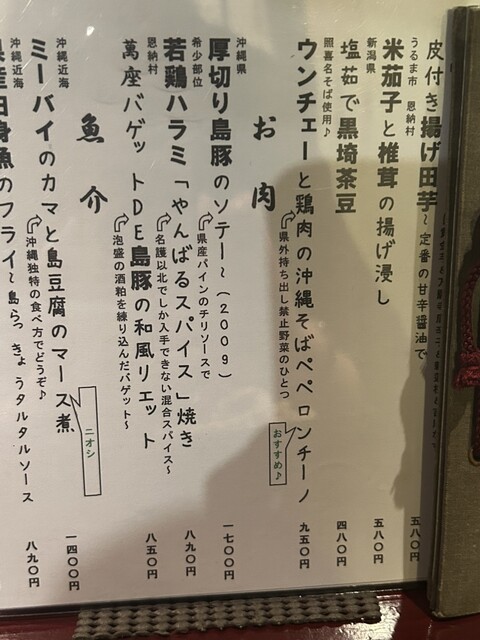 皮付き揚げ田芋～定番の甘辛醤油で
五八〇円
うるま市 恩納村
米茄子と椎茸の揚げ浸し
五八〇円
新潟県
塩茹で黒埼茶豆
四八〇円
照喜名そば使用♪
ウンチェーと鶏肉の沖縄そばペペロンチーノ
九五〇円
県外持ち出し禁止野菜のひとつ
おすすめ♪
お肉
沖縄県
厚切り島豚のソテー～(200g)
一七〇〇円
県産パインのチリソースで
希少部位
若鶏ハラミ「やんばるスパイス」焼き
八九〇円
名護以北でしか入手できない混合スパイス～
恩納村
萬座バゲットDE島豚の和風リエット
八五〇円
泡盛の酒粕を練り込んだバゲット～
魚介
沖縄近海
ミーバイのカマと島豆腐のマース煮
一四〇〇円
沖縄独特の食べ方でどうぞ♪
ニオシ
沖縄近海
県産白身魚のフライ～島らっきょうタルタルソース
八九〇円